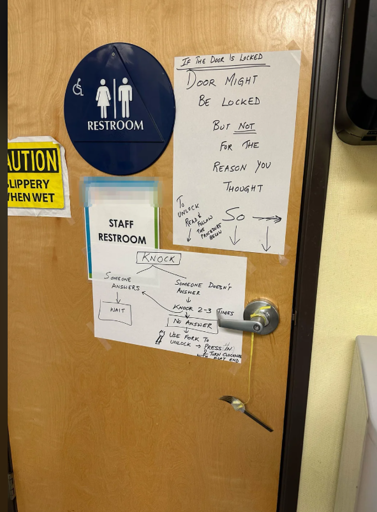 IF THE DOOR IS LOCKED
DOOR MIGHT
BE LOCKED
BUT NOT
FOR THE
REASON YOU
THOUGHT
SO
TO
UNLOCK
READ &
FOLLOW
THE
PROCEDURE
BELOW
RESTROOM
CAUTION
SLIPPERY
WHEN WET
STAFF
RESTROOM
KNOCK
SOMEONE
ANSWERS
WAIT
SOMEONE DOESN'T
ANSWER
KNOCK 2-3 TIMES
NO ANSWER
USE FORK TO
UNLOCK → PRESS IN
& TURN CLOCKWISE